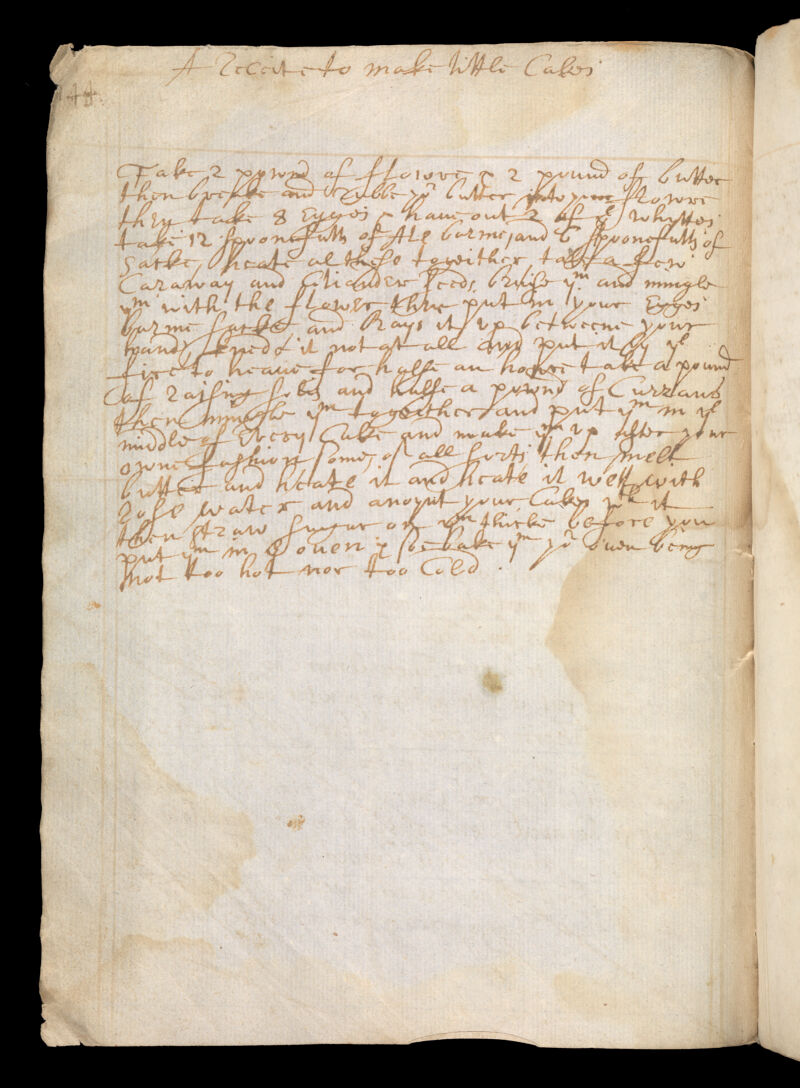 A Receite to make little Cakes
Take 2 pownd of fflowre & 2 pound of butter
then breake and Rubbe yr butter into flowre
they take 8 Egges & haue out 2 of ye whyttes
take 12 spoonefulls of Ale barme, and 6 spoonefulls of
Sacke, beate al these togeither, take a few
Caraway and Coliander seeds, bruise ym and mingle
ym with the flower then put in your Egges
barme sacke and Rays it vp betweene your
hands knede it not at all and put it by ye
fire to heaue for halfe an howre take a pound
of Raisings soles and halfe a pownd of Currans
then mingle ym together and put ym in ye
middle of Every Cake and make ym vp after your
owne fashion some of all sorts then melt
butter and heate it and beate it well with
Rose water and anoynt your Cakes wth it
then straw sugar on ym thicke before you
put ym in ouen & soe bake ym yr ouen being
not too hot nor too Cold .